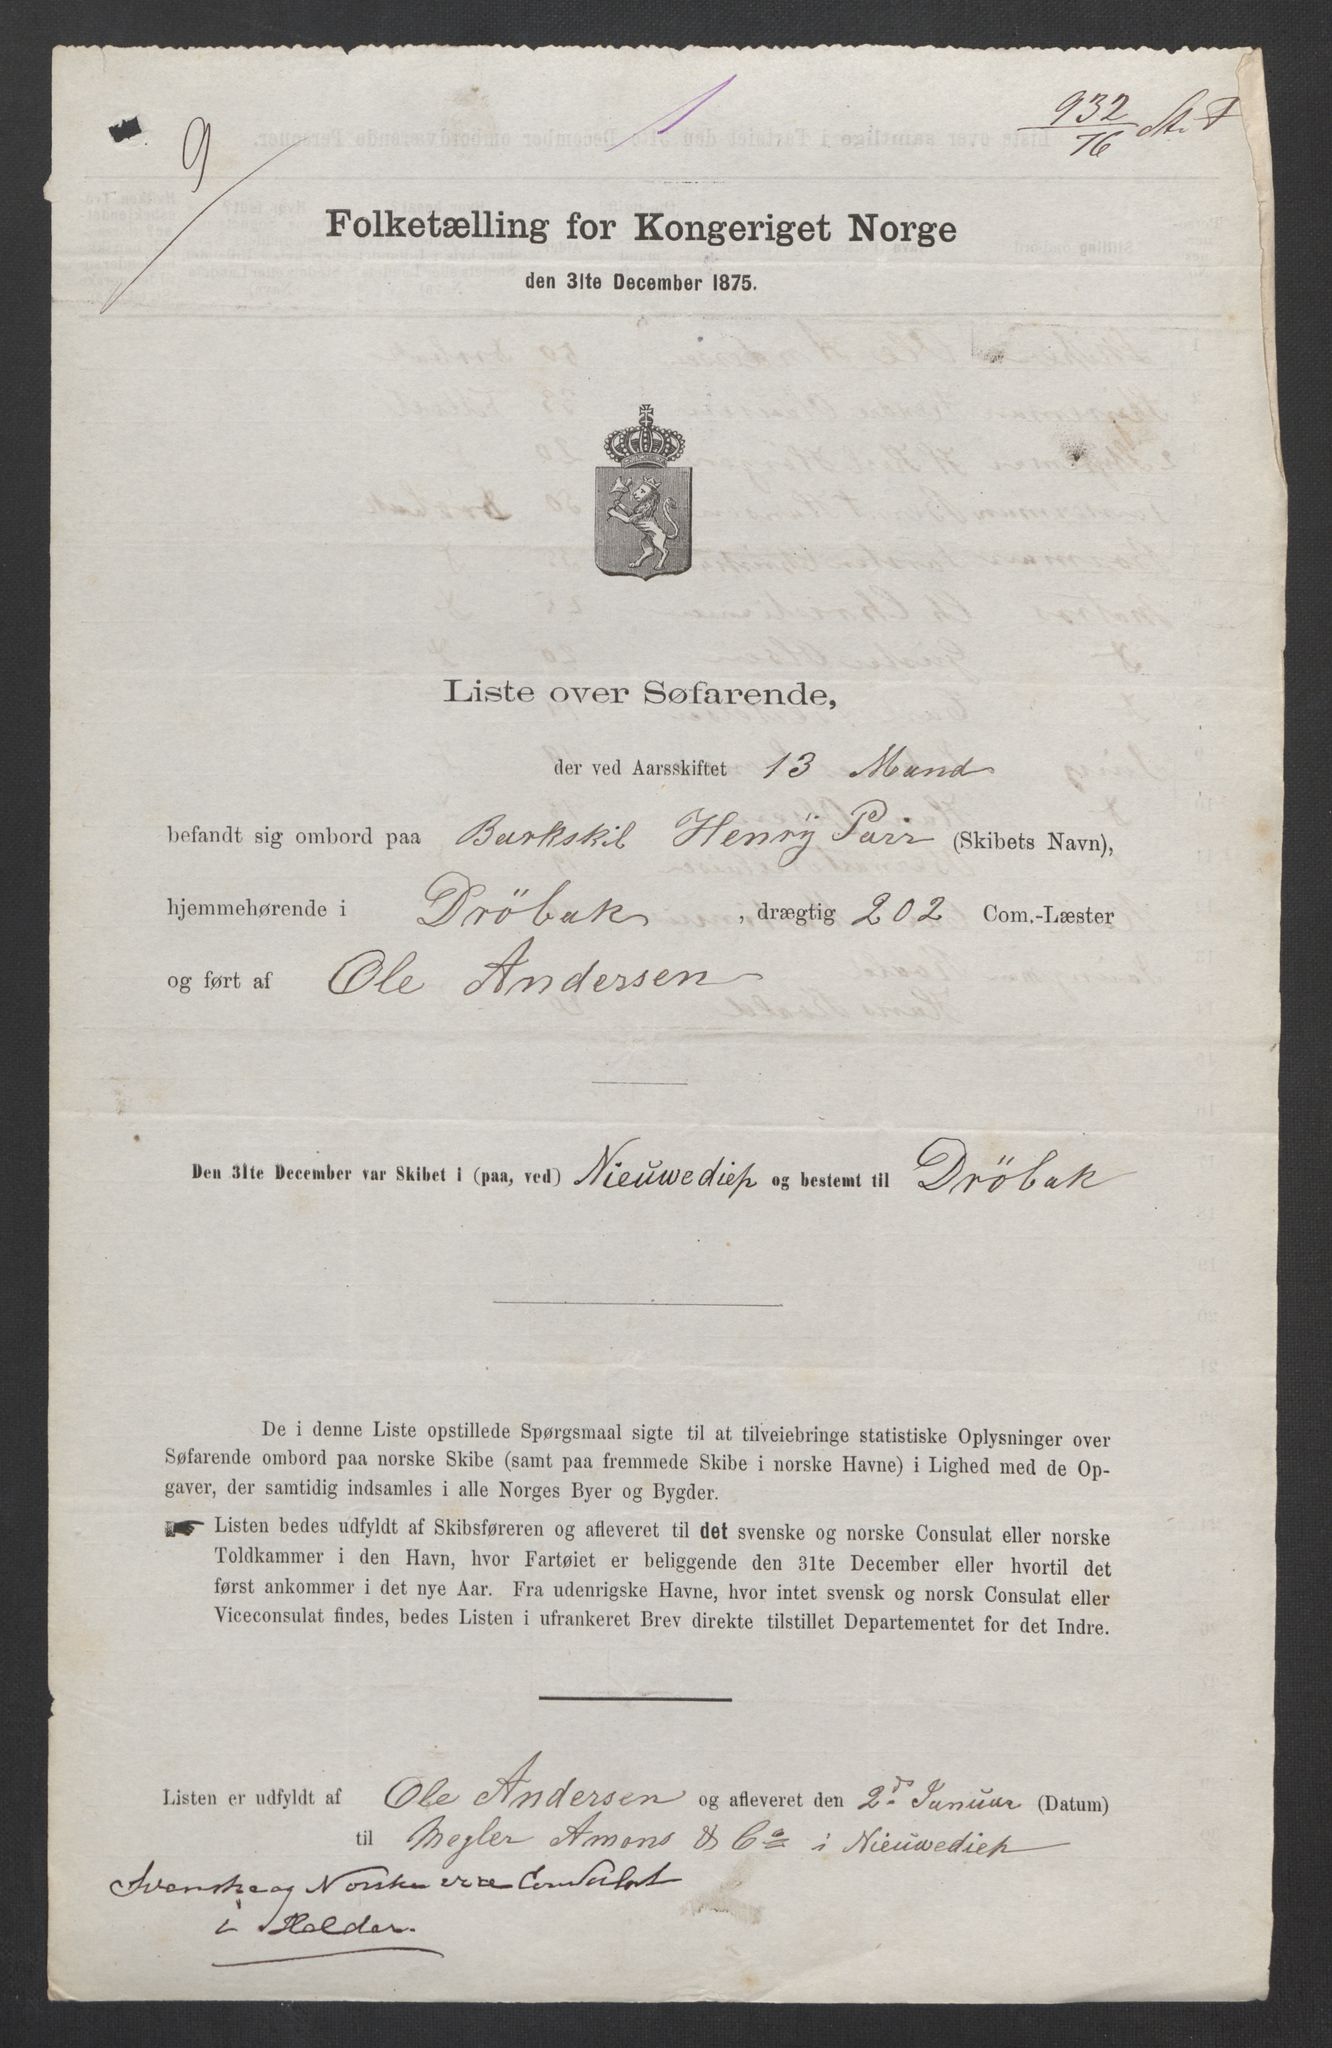 9
1
932
76
Folketælling for Kongeriget Norge
den 31te December 1875.
Liste over Søfarende,
der ved Aarsskiftet 13 Mand
befandt sig ombord paa Barkskib Henrÿ Parr (Skibets Navn),
hjemmehørende i Dröbak, drægtig 202 Com.-Læster
og ført af Ole Andersen
Den 31te December var Skibet i (paa, ved) Nieuwediep og bestemt til Dröbak
De i denne Liste opstillede Spørgsmaal sigte til at tilveiebringe statistiske Oplysninger over
Søfarende ombord paa norske Skibe (samt paa fremmede Skibe i norske Havne) i Lighed med de Op-
gaver, der samtidig indsamles i alle Norges Byer og Bygder.
Listen bedes udfyldt af Skibsføreren og afleveret til det svenske og norske Consulat eller norske
Toldkammer i den Havn, hvor Fartøiet er beliggende den 31te December eller hvortil det
først ankommer i det nye Aar. Fra udenrigske Havne, hvor intet svensk og norsk Consulat eller
Viceconsulat findes, bedes Listen i ufrankeret Brev direkte tilstillet Departementet for det Indre.
Listen er udfyldt af Ole Andersen og afleveret den 2d Januar (Datum)
til Megler Amons & Co i Nieuwediep
Svenske og Norske vice Consulat
i Helder.